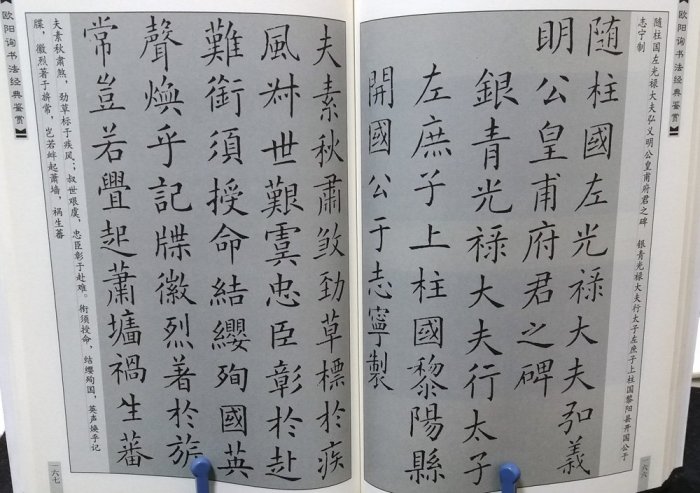 欧阳询书法经典鉴赏】
随柱国左光禄大夫弘义明公皇甫府君之碑　银青光禄大夫行太子左庶子上柱国黎阳县开国公于
志宁制
随柱國左光祿大夫弘義
明公皇甫府君之碑
銀青光祿大夫行太子
左庶子上柱國黎陽縣
開國公于志寧製
一六六
夫素秋肅煞勁草標於疾
風叔世艱虞忠臣彰於赴
難銜須授命結纓殉國英
聲煥乎記牒徽烈著於旂
常豈若舋起蕭墻禍生蕃
夫素秋肃煞，劲草标于疾风；叔世艰虞，忠臣彰于赴难。衔须授命，结缨殉国，英声焕乎记
牒，徽烈著于旂常，岂若衅起萧墙，祸生蕃
欧阳询书法经典鉴赏】
一六七